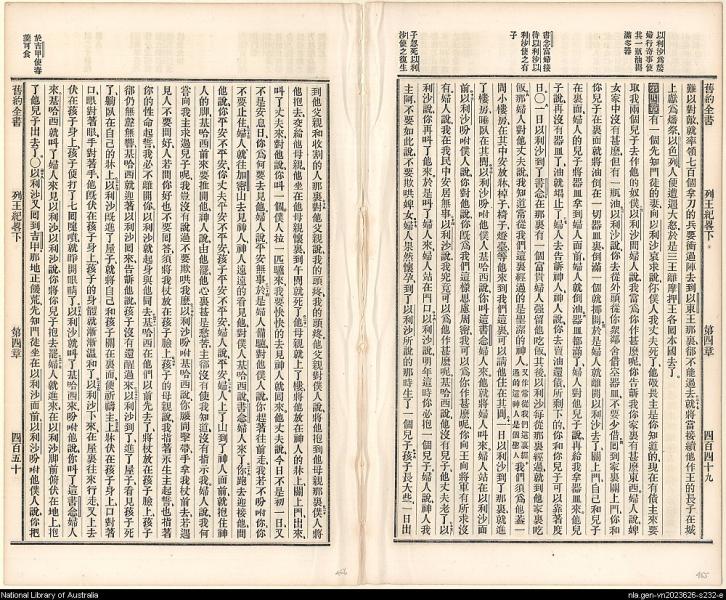 以利沙為嫠
婦行奇事使
其一瓶油盈
滿多器
書念富婦接
待以利沙以
利沙使之有
子
子忽死以利
沙使之復生
舊約全書
列王紀畧下
第四章
四百四十九
難以對敵就率領七百個拿刀的兵要衝過陣去到以東王那裏都不能過去就將當接續他作王的長子在城
上獻為燔祭以色列人便遭遇大怒於是三王離摩押王各回本國去了
第四章有一個先知門徒的妻向以利沙哀求說你僕人我丈夫死了他敬畏主是你知道的現在有債主來要
取我兩個兒子去作他的奴僕以利沙問婦人說我當為你作甚麼呢你告訴我你家裏有甚麼東西婦人說婢
女家中沒有甚麼但有一瓶油以利沙說你去從外頭從你衆鄰舍借空器皿不要少借回到家裏關上門你和
你兒子在裏面就將油倒在一切器皿裏倒滿一個就挪開於是婦人就離開以利沙去了關上門自己和兒子
在裏面婦人的兒子將器皿拿到婦人面前婦人就倒油器皿都滿了婦人對他兒子說再給我拿器皿來他兒
子說再沒有器皿了油就止了婦人去告訴神人神人說你去賣油還債所剩下的你和你兒子可以靠著度
日〇一日以利沙到了書念在那裏有一個富貴婦人強留他吃飯其後以利沙每從那裏經過就到他家裏吃
飯那婦人對他丈夫說我知道當從我們這裏經過的是聖潔的神人我們須為他蓋一
間小樓房在其中安放牀桌子椅子燈臺等他來到我們這裏可以請他住在其間一日以利沙到了那裏就進
了樓房睡臥在其間以利沙吩咐他僕人基哈西說你叫這書念婦人來他就將婦人叫來婦人站在以利沙面
前以利沙吩咐僕人說你對他說你為我們這樣思慮周密我可以為你作甚麼呢你向王向將軍有所求沒
有婦人說我在我民中安居無事以利沙說我究竟可以為他作甚麼呢基哈西說他沒有兒子他丈夫老了以
利沙說你再叫了他來於是叫了婦人來婦人站在門口以利沙說明年這時你必抱一個兒子婦人說神人我
主阿不要如此說不要欺哄婢女婦人果然懷孕到了以利沙所說的那時生了一個兒子孩子長大些一日出
於吉甲使毒
羹可食
舊約全書
列王紀畧下
第四章
四百五十
到他父親和收割的人那裏對他父親說我的頭疼我的頭疼他父親對僕人說將他抱到他母親那裏僕人將
他抱去交給他母親他坐在母親懷裏到午間就死了他母親就上了樓將他放在神人的牀上關上門出來
叫了丈夫來對他說你叫一個僕人拉一匹驢來我要快快的去見神人就回來他丈夫說今日不是初一日又
不是安息日你為何要去見他婦人說平安無事於是婦人備驢對他僕人說你趕著往前走我若不吩咐你你
不要止住婦人就往加密山去見神人神人遠遠的看見他對僕人基哈西說書念婦人來了你跑去迎接他問
他說你平安不平安你丈夫平安不平安孩子平安不平安婦人說平安婦人上了山到了神人面前就抱住神
人的腳基哈西前來要推開他神人說由他罷他心裏甚是愁苦主卻沒有使我知道沒有指示我婦人說我何
嘗向我主求過兒子呢我豈沒有說過不要欺哄我麼以利沙吩咐基哈西說你腰間繫帶手拿我杖前去若遇
見人不要問好人若問你好也不要回答須將我杖放在孩子臉上孩子的母親說我指著永生主起誓也指著
你的性命起誓我必不離開你以利沙就起身與他同去基哈西在他們以前先去了將杖放在孩子臉上孩子
卻仍無聲無響基哈西就迎著以利沙回來告訴他說孩子沒有還醒過來以利沙到了進了屋子看見孩子死
了躺臥在自己的牀上以利沙既進了屋子就將自己和孩子關在裏面便祈禱主上牀伏在孩子身上口對著
口眼對著眼手對著手他既伏在孩子身上孩子的身體就漸漸溫和了以利沙下來在屋裏往來行走又上去
伏在孩子身上孩子便打了七回嚏噴就睜開眼睛了以利沙就叫了基哈西來吩咐他說你叫了這書念婦人
來基哈西就叫了婦人來見以利沙以利沙說你將你兒子抱去罷婦人就進來在以利沙脚前俯伏在地上抱
了他兒子出去了〇以利沙又回到吉甲那地正饑荒先知門徒坐在以利沙面前以利沙吩咐他僕人說你把
465
National Library of Australia
nla.gen-vn2023626-s232-e